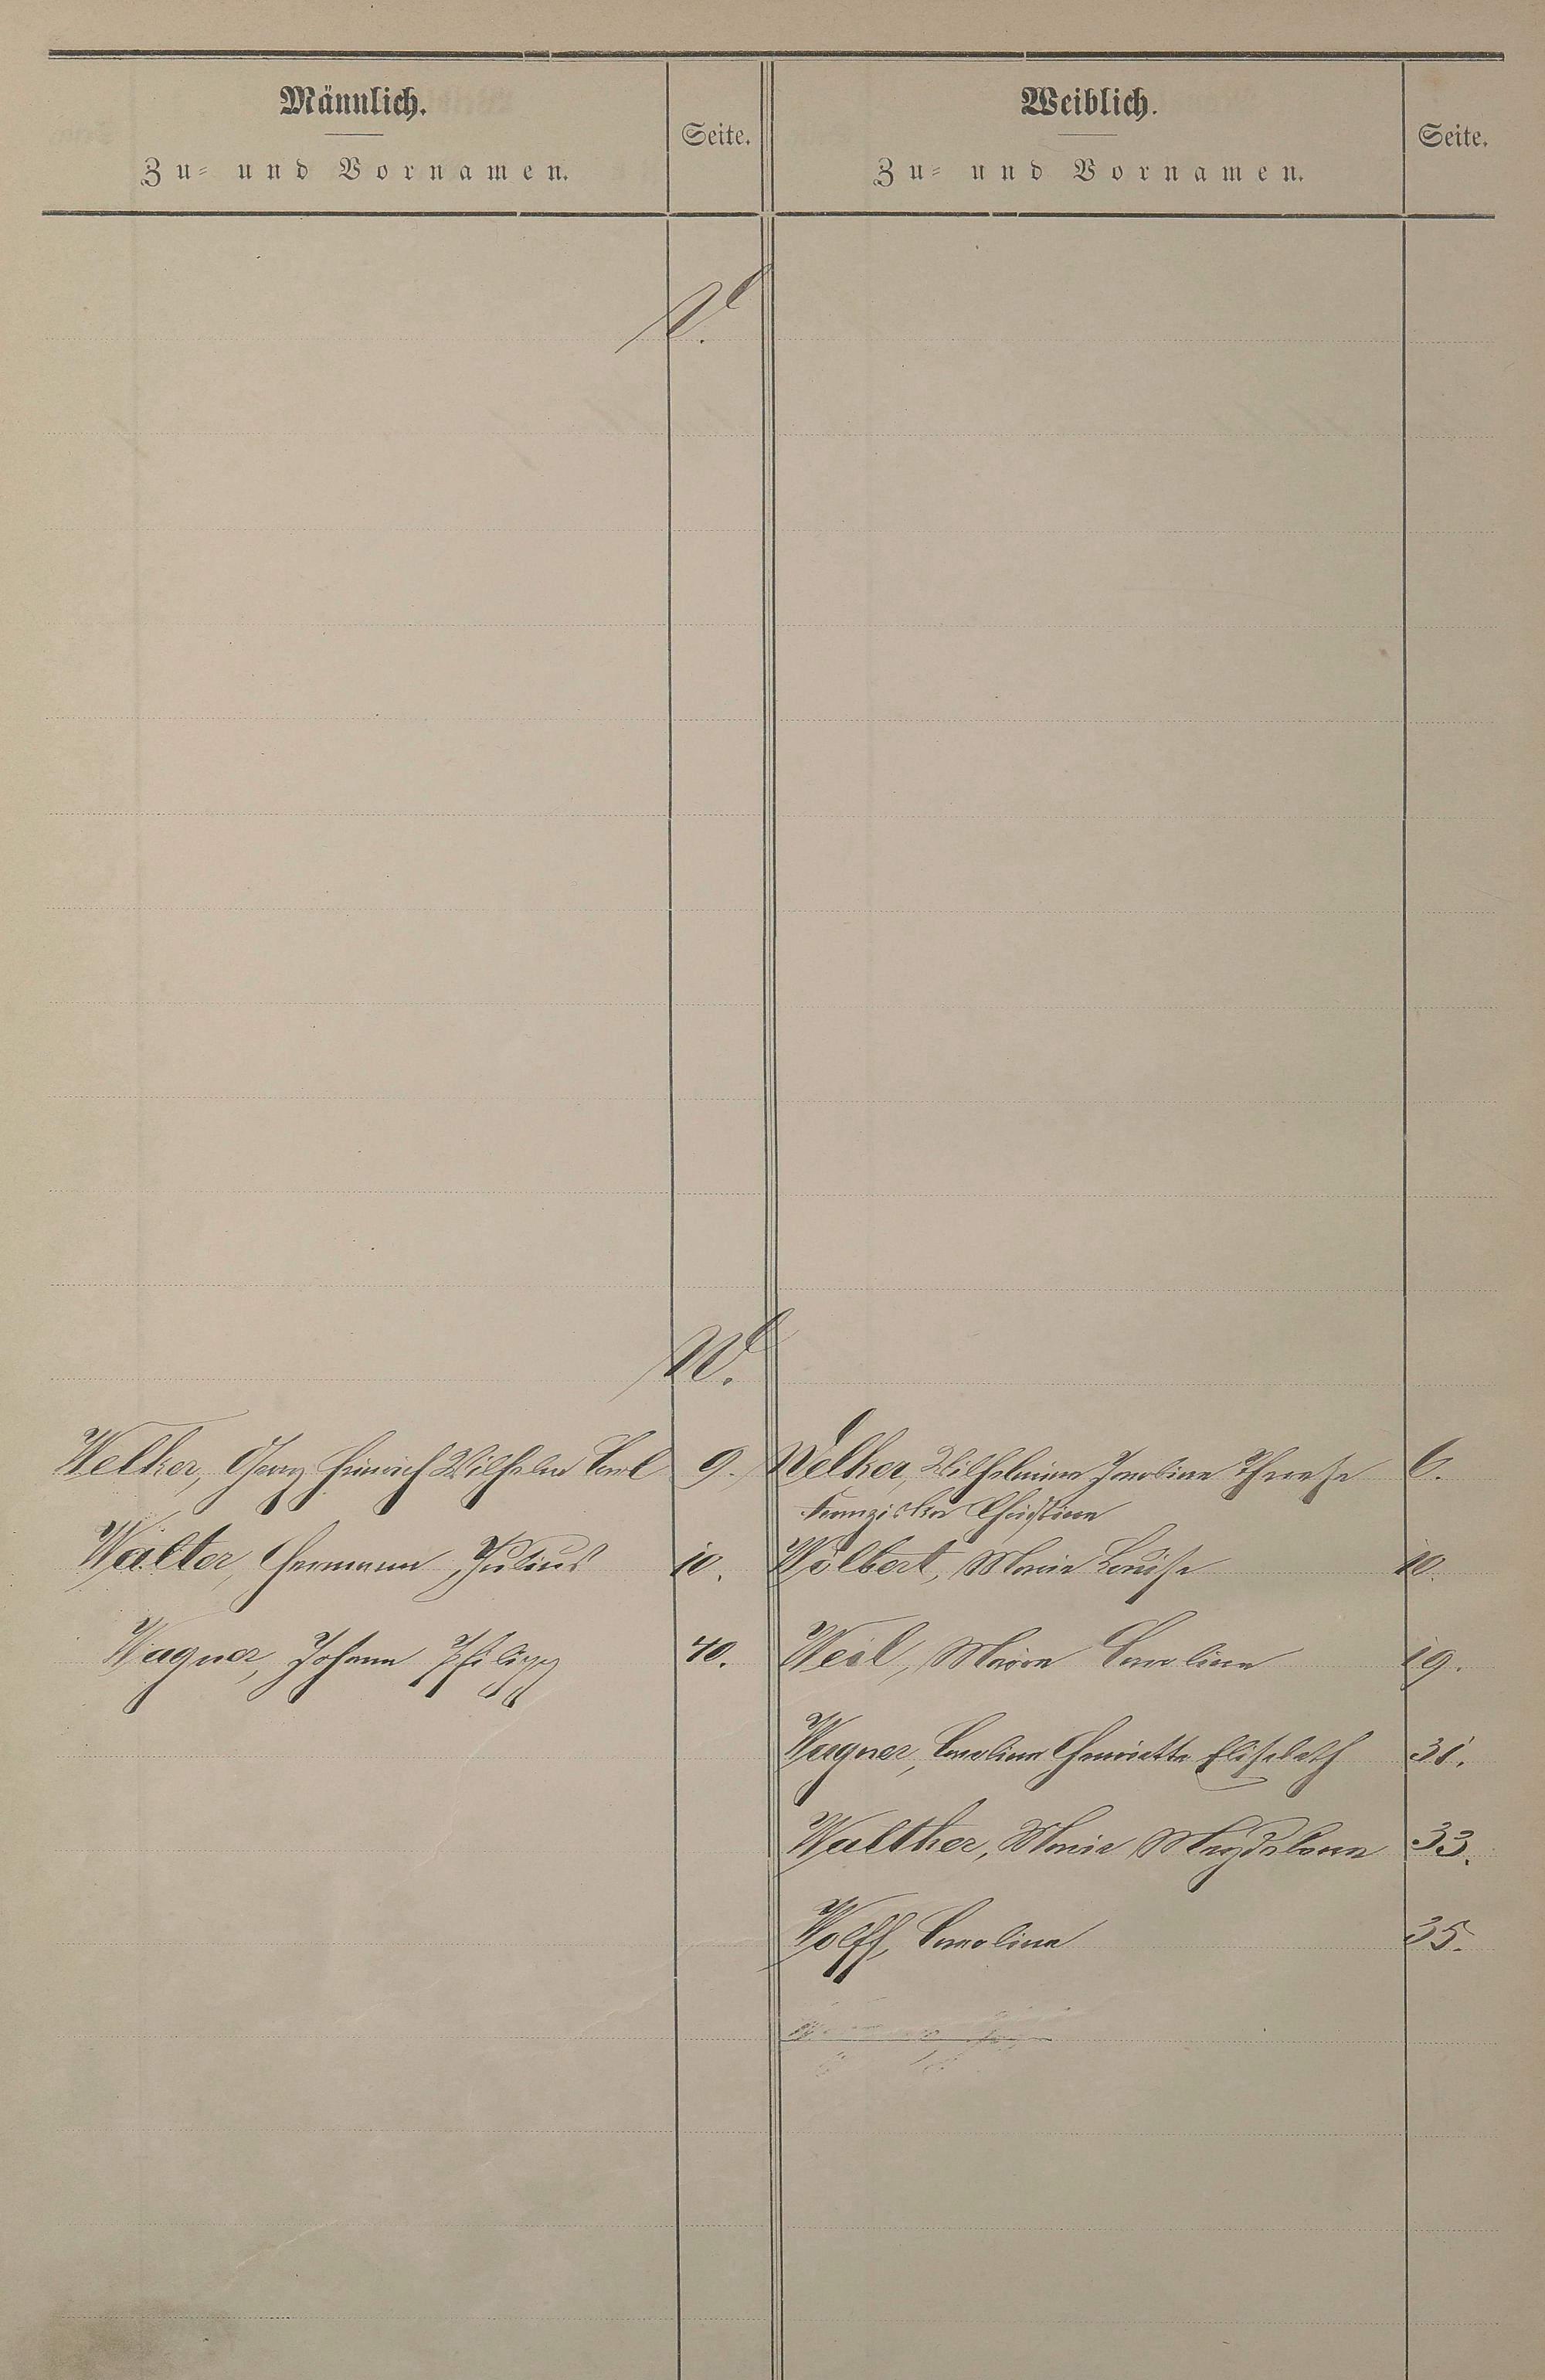 Männlich.
Zu- und Vornamen.
Seite.
Weiblich.
Zu- und Vornamen.
Seite.
V.
W.
Welker, Georg Heinrich Wilhelm Carl 9.
Welker, Wilhelmine Jacobine Therese 6.
Franziska Christine
Walter, Hermann Julius 10.
Wölbert, Marie Louise 10.
Wagner, Johann Philipp 40.
Weil, Marie Caroline 19.
Wagner, Caroline Henriette Elisabeth 31.
Walther, Marie Magdalena 33.
Wolff, Carolina 35.